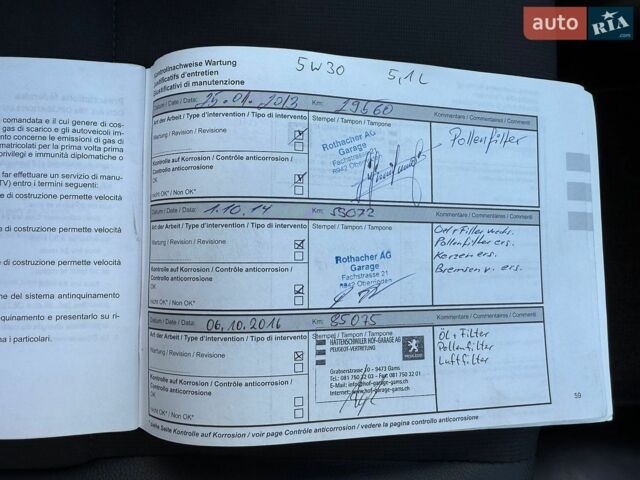 auto RIA.com
comandata e il cui genere di cos-
gas di scarico e gli autoveicoli im-
concerne le emissioni di gas di
matricolati per la prima volta prima
privilegi e immunità diplomatiche o
far effettuare un servizio di manu-
TV) entro i termini seguenti:
di costruzione permette velocità
di costruzione permette velocità
di costruzione permette velocità
ne del sistema antinquinamento
quinamento e presentarlo su ri-
i particolari.
Kontrollnachweise Wartung
Justificatifs d'entretien
Giustificativi di manutenzione
5W30 5,1 L
Datum / Date / Data: 25.01.2013 Km: 29560
Kommentare / Commentaires / Commenti
Art der Arbeit / Type d'intervention / Tipo di intervento
Stempel / Tampon / Tampone
Wartung / Revision / Revisione
Rothacher AG
Garage
Fachstrasse 21
8942 Oberrieden
Pollenfilter
Kontrolle auf Korrosion / Contrôle anticorrosion /
Controllo anticorrosione
OK
nicht OK* / Non OK*
Datum / Date / Data: 1.10.14 Km: 55072
Kommentare / Commentaires / Commenti
Art der Arbeit / Type d'intervention / Tipo di intervento
Stempel / Tampon / Tampone
Wartung / Revision / Revisione
Rothacher AG
Garage
Fachstrasse 21
8942 Oberrieden
Pollenfilter ers.
Kerzen ers.
Bremsen v. ers.
Kontrolle auf Korrosion / Contrôle anticorrosion /
Controllo anticorrosione
OK
nicht OK* / Non OK*
Datum / Date / Data: 06.10.2016 Km: 85075
Kommentare / Commentaires / Commenti
Art der Arbeit / Type d'intervention / Tipo di intervento
Stempel / Tampon / Tampone
Wartung / Revision / Revisione
HÄTTENSCHWILER HOF-GARAGE AG
PEUGEOT-VERTRETUNG
PEUGEOT
Grabserstrasse 10 - 9473 Gams
Tel.: 081 750 32 03 - Fax 081 750 32 01
E-Mail: info@hof-garage-gams.ch
Internet: www.hof-garage-gams.ch
Öl + Filter
Pollenfilter
Luftfilter
Kontrolle auf Korrosion / Contrôle anticorrosion /
Controllo anticorrosione
OK
nicht OK* / Non OK*
*siehe Seite Kontrolle auf Korrosion / voir page Contrôle anticorrosion / vedere la pagina controllo anticorrosione
59